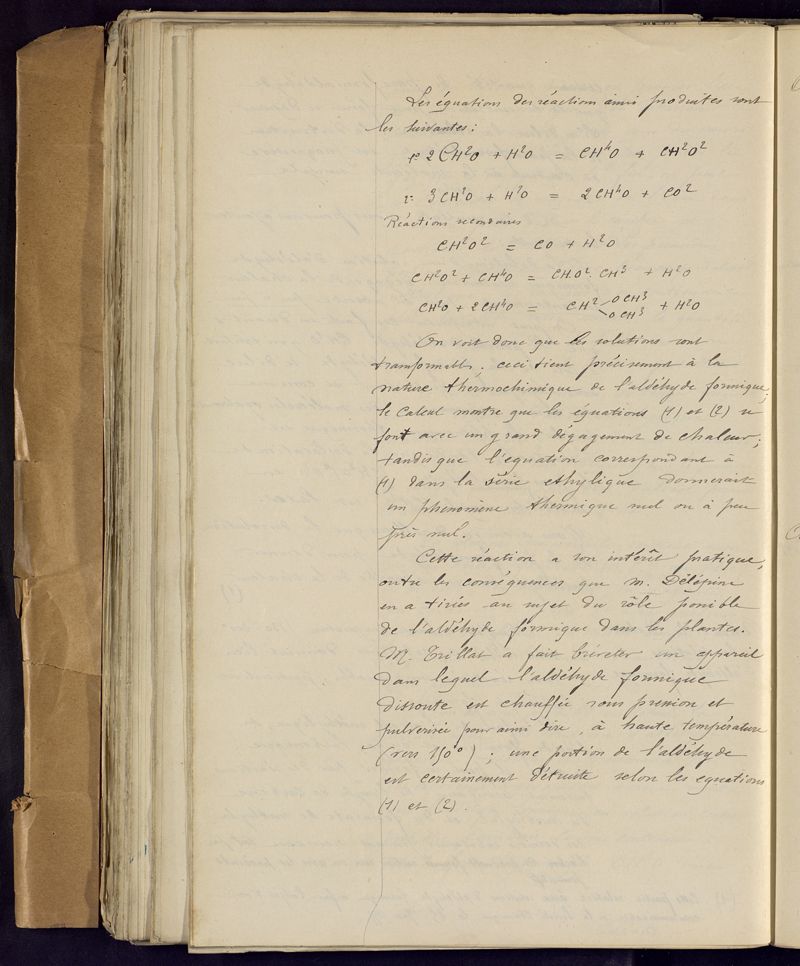 Les équations des réactions ainsi produites sont
les suivantes :
1° 2 CH²O + H²O = CH⁴O + CH²O²
2° 3 CH²O + H²O = 2 CH⁴O + CO²
Réactions secondaires
CH²O² = CO + H²O
CH²O² + CH⁴O = CHO². CH³ + H²O
CH²O + 2 CH⁴O = CH² OCH³ OCH³ + H²O
On voit donc que les solutions sont
transformables, ceci tient précisement à la
nature thermochimique de l'aldéhyde formique;
le calcul montre que les équations (1) et (2) se
font avec un grand dégagement de chaleur;
tandis que l'equation correspondant à
(1) dans la série ethylique donnerait
un phenomène thermique nul ou à peu
près nul.
Cette réaction a son intérêt pratique,
outre les conséquences que M. Délépine
en a tirées au sujet du rôle possible
de l'aldéhyde formique dans les plantes.
M. Trillat a fait bréveter un appareil
dans lequel l'aldéhyde formique
dissoute est chauffée sous pression et
pulverisée pour ainsi dire, à haute température
(vers 150°) ; une portion de l'aldéhyde
est certainement détruite selon les equations
(1) et (2).